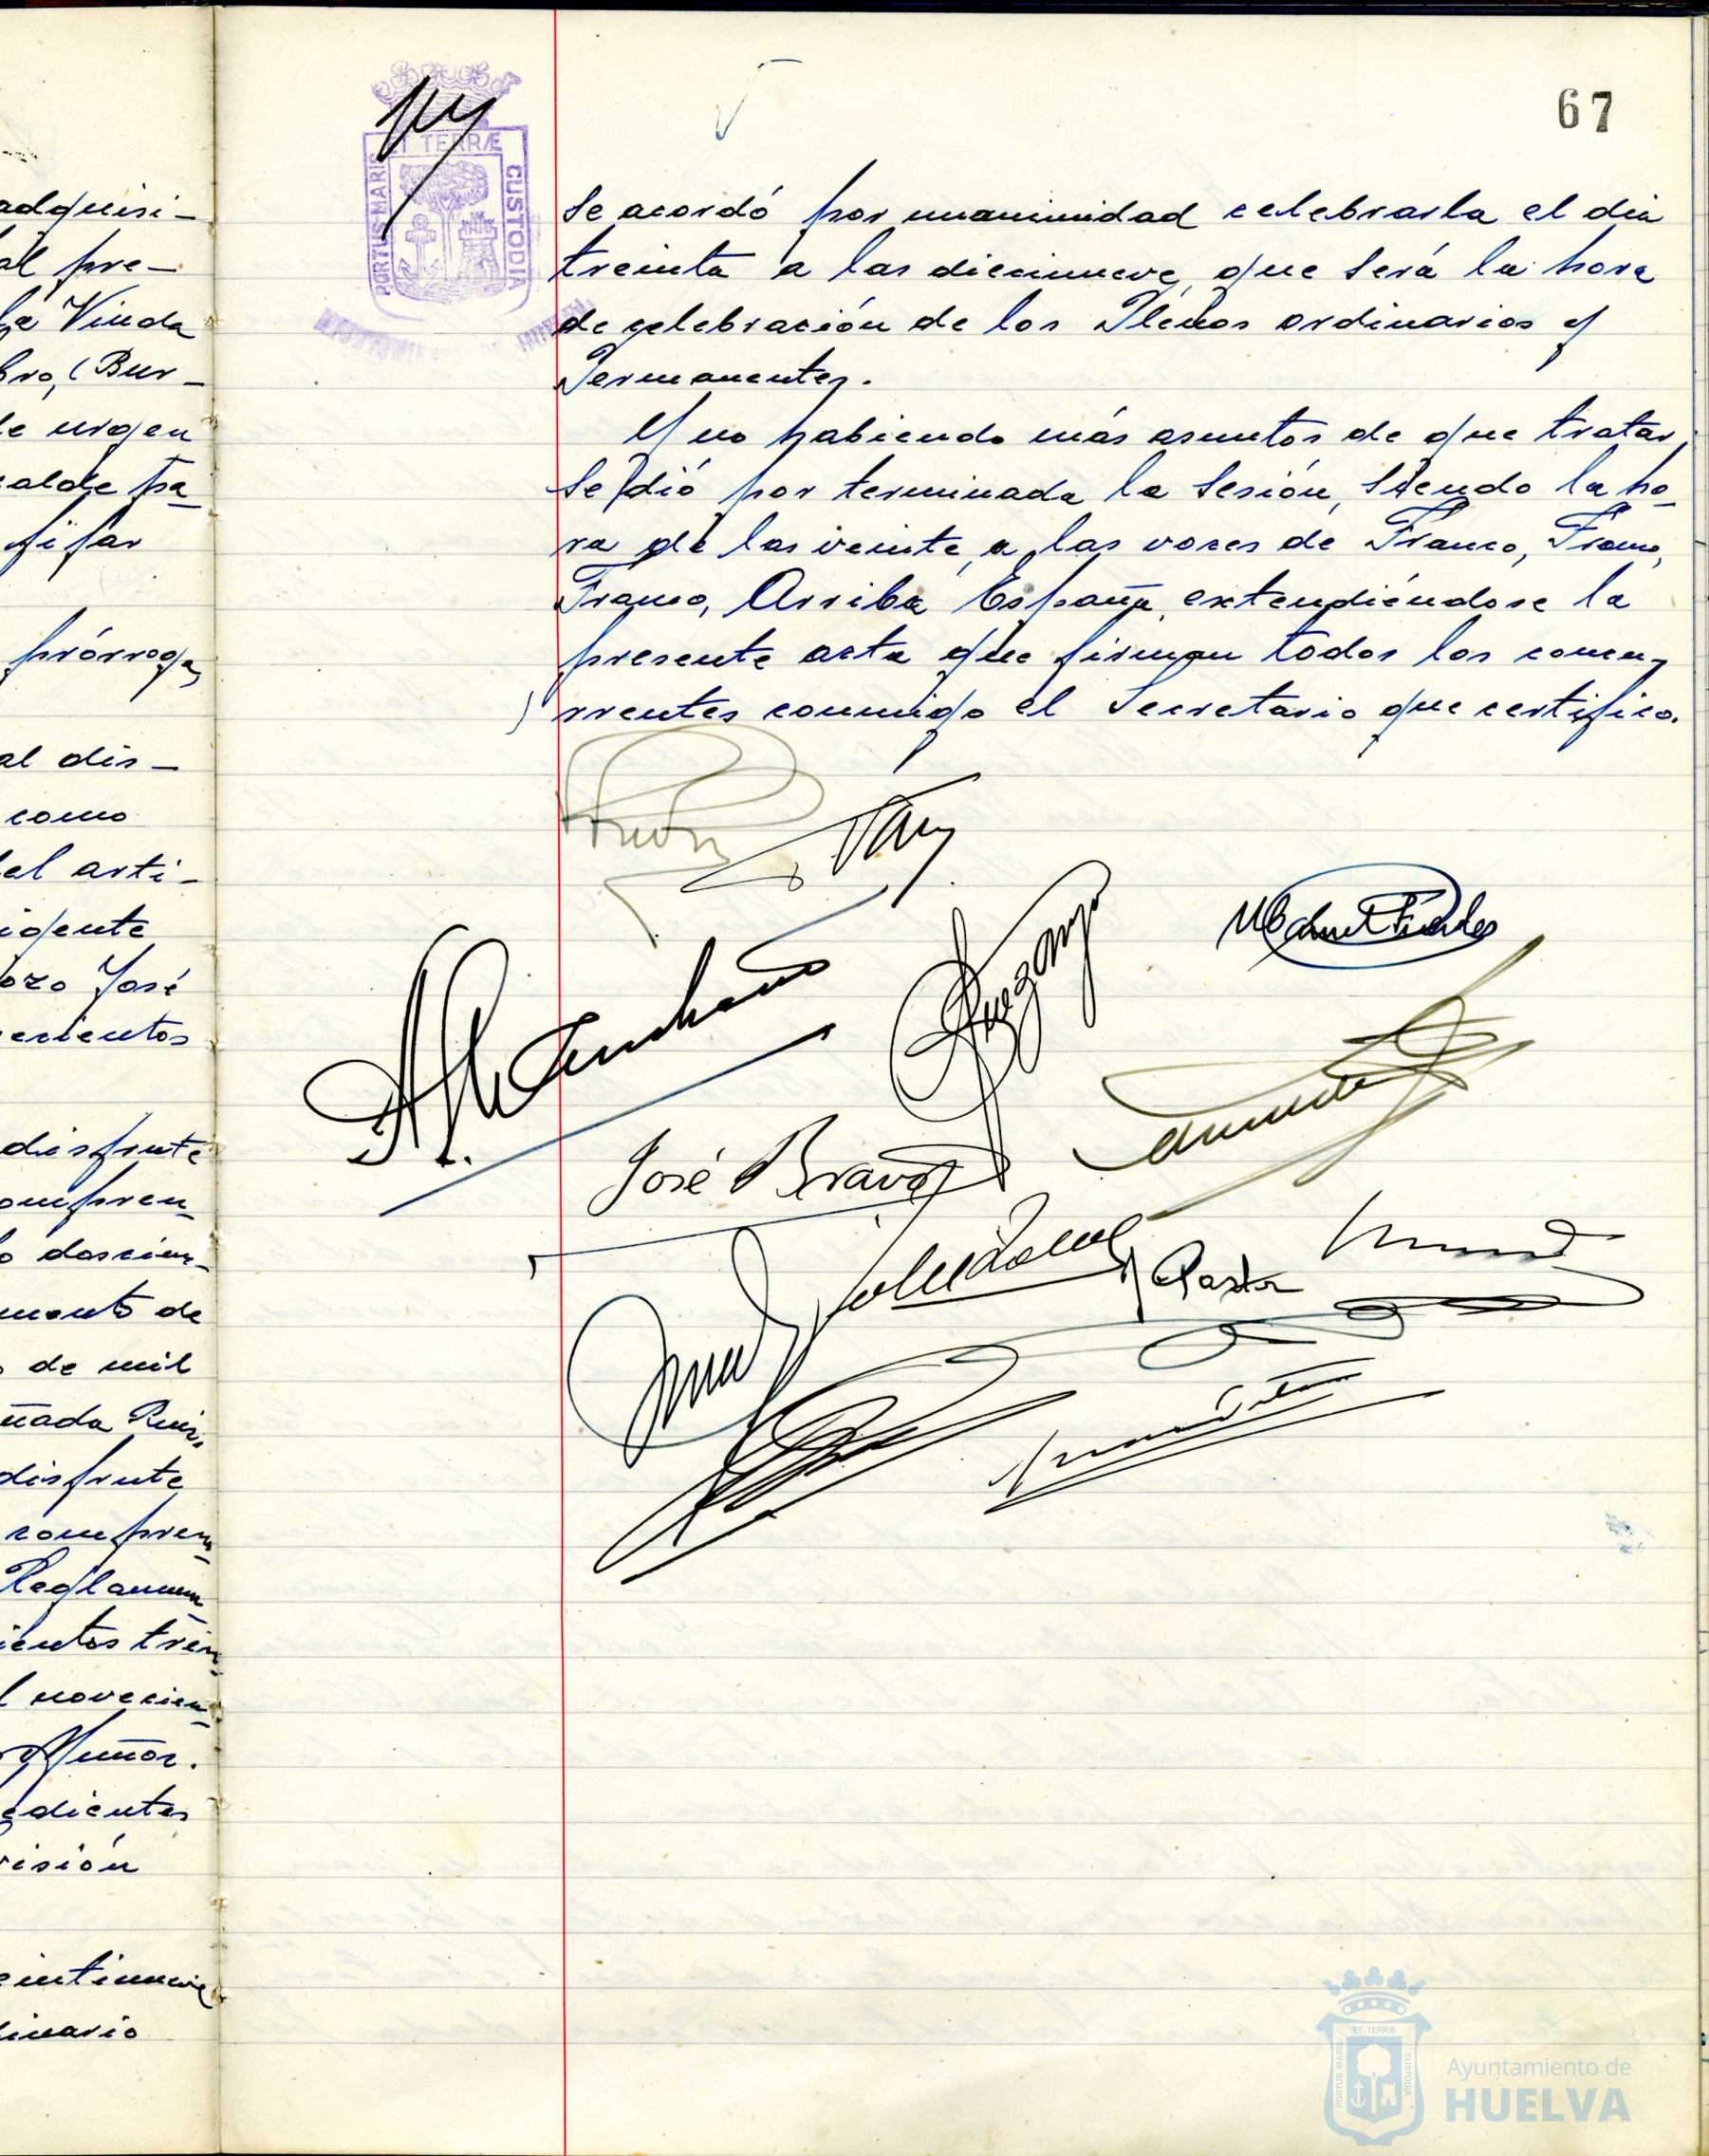 adquisi-
al pre-
la Viuda
bro, (Bur-
de urgen
calde pa-
fijar
prórroga,
al dis-
como
el arti-
igente
ozo José
ecientos
disfrute
compren
o doscien-
mento de
de mil
ñada Ruiz,
disfrute
compren
Reglamen
cientos trein
l novecien
Muñoz.
edientes
visión
eintinueve
dinario
67
ET TERRÆ
PORTUS MARIS
CUSTODIA
se acordó por unanimidad celebrarla el dia
treinta a las diecinueve, que será la hora
de celebración de los Plenos ordinarios y
Permanentes.
Y no habiendo más asuntos de que tratar,
se dió por terminada la sesión, siendo la ho-
ra de las veinte, a las voces de Franco, Franco,
Franco, Arriba España, extendiéndose la
presente acta que firman todos los concu-
rrentes conmigo el Secretario que certifico.
José Bravo
ET TERRÆ
PORTUS MARIS
CUSTODIA
Ayuntamiento de
HUELVA